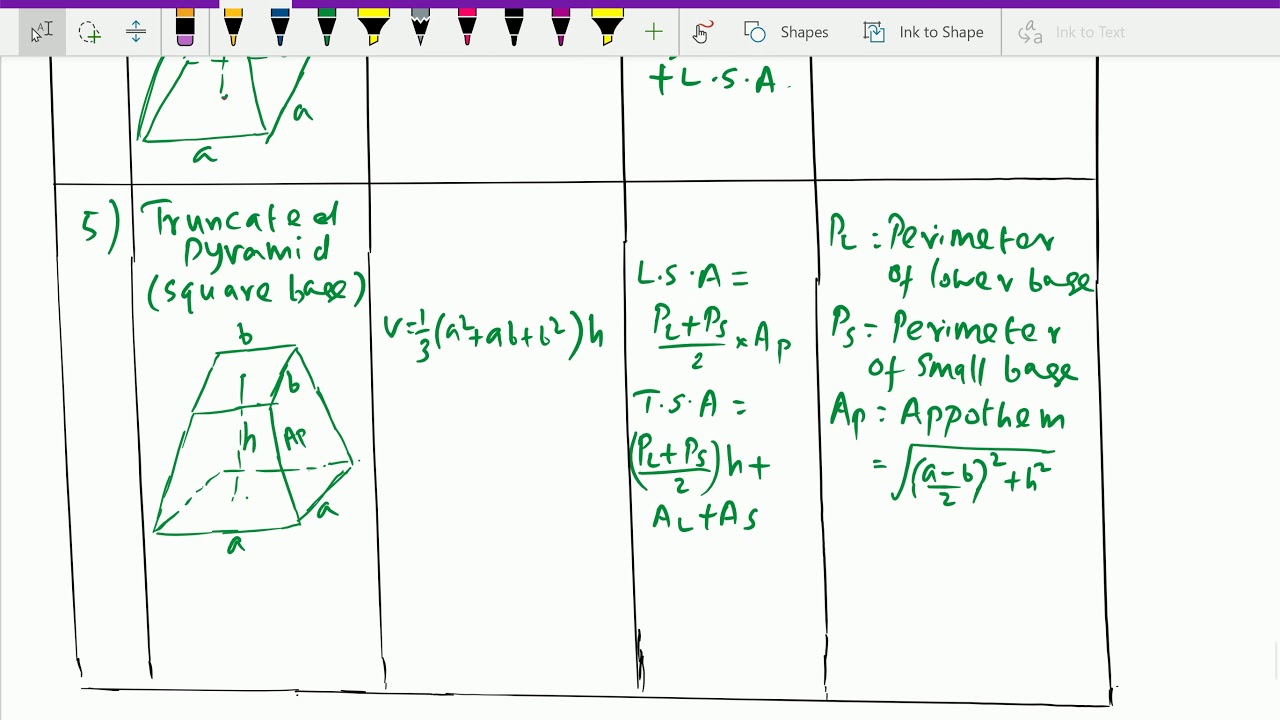 Shapes
Ink to Shape
Ink to Text
a
a
+ L.S.A.
5)
Truncated
Pyramid
(square base)
b
b
h
Ap
a
a
V=1/3(a²+ab+b²)h
L.S.A =
PL+Ps/2 × Ap
T.S.A =
(PL+Ps/2)h+
AL+As
PL : Perimeter
of lower base
Ps = Perimeter
of small base
Ap = Appothem
= √((a-b/2)²+h²)